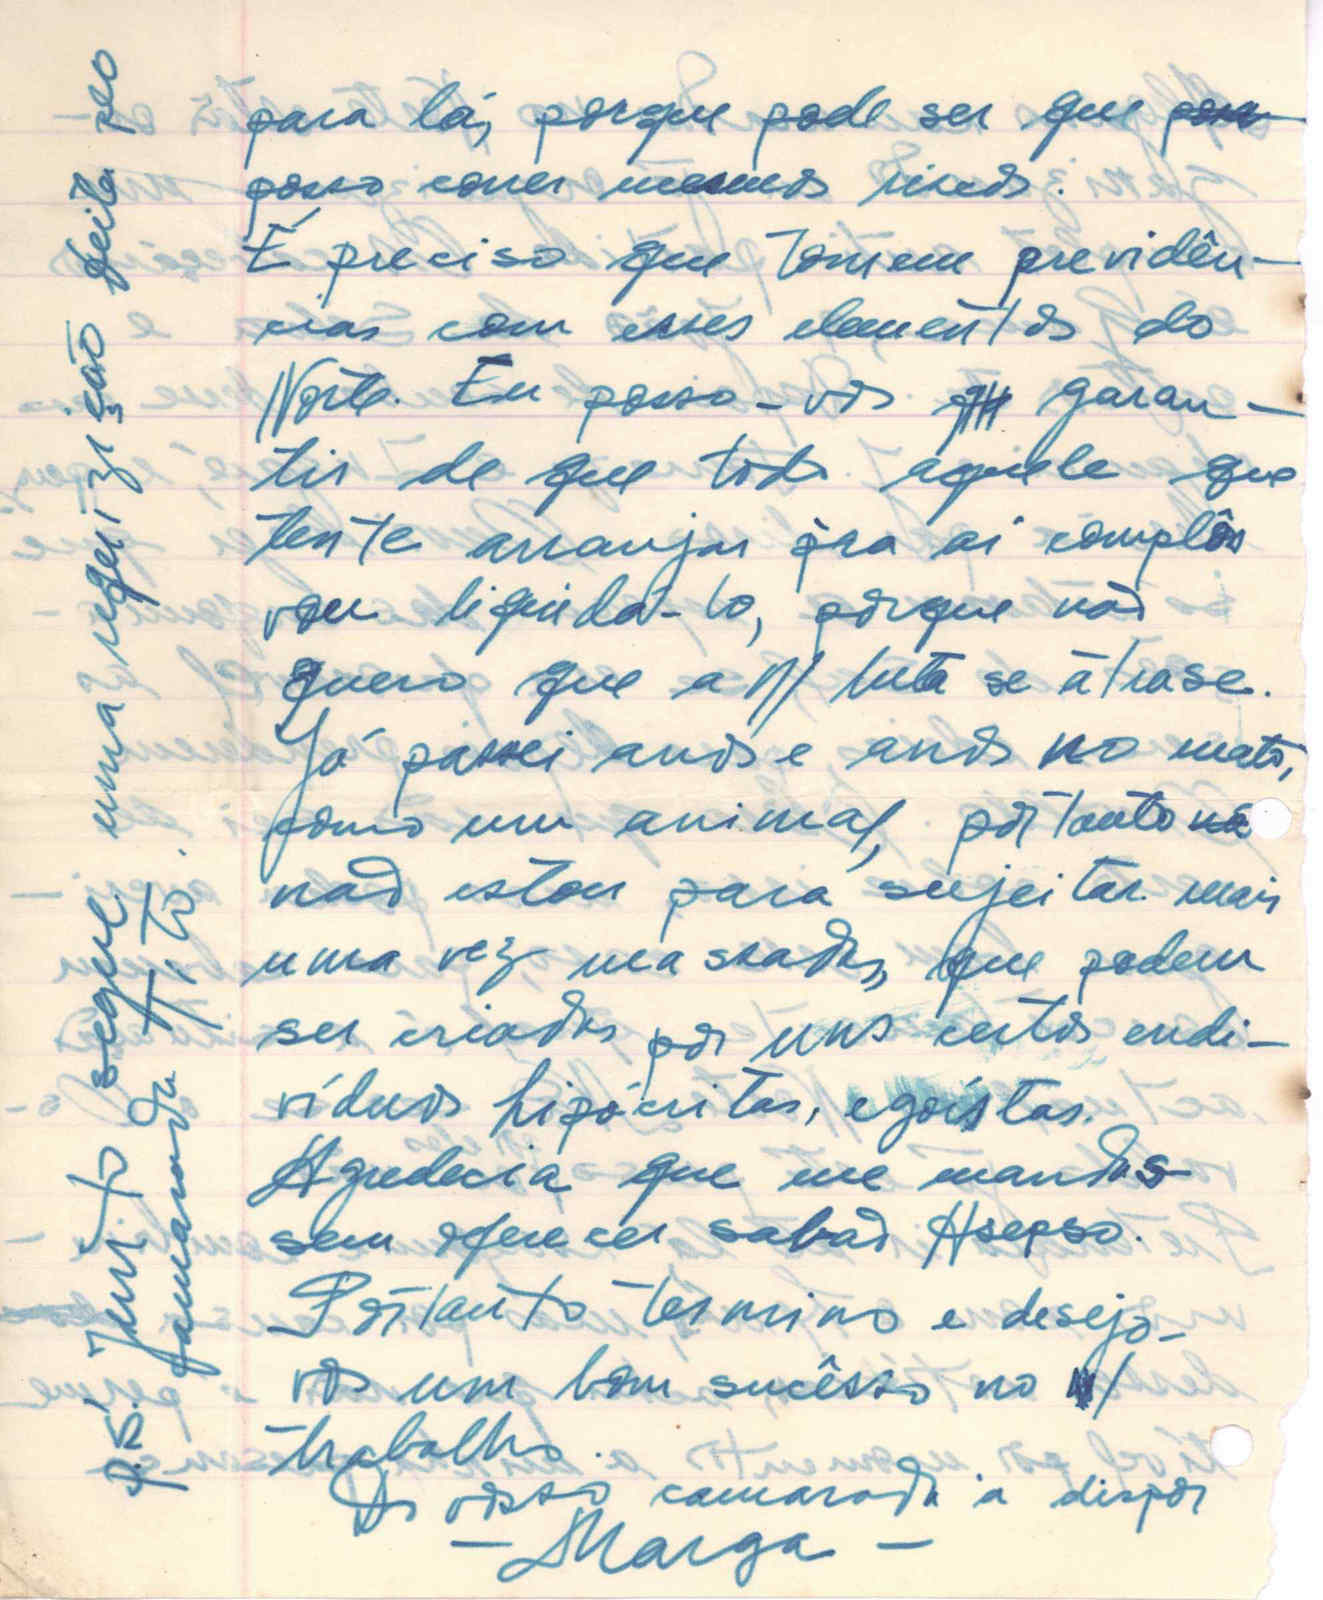 para lá, porque pode ser que
posso correr mesmos riscos.
É preciso que tomem previdên-
cias com esses elementos do
Norte. Eu posso-vos garan-
tir de que todo aquele que
tente arranjar pra aí complôs
vou liquidá-lo, porque não
quero que a N/ luta se atrase.
Já passei anos e anos no mato,
como um animal, portanto
não estou para sujeitar mais
uma vez massadas, que podem
ser criadas por uns certos endi-
víduos hipócritas, egoístas.
Agradecia que me mandas
sem oferecer sabão Asepso.
Portanto termino e desejo-
vos um bom sucêsso no V/
trabalho.
Do vosso camarada à dispor
- Marga -
P.S. Junto segue uma requizição feita pelo
camarada Tito.